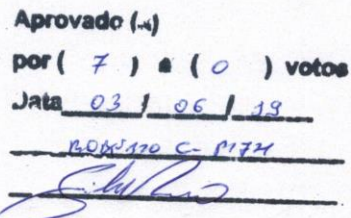 Aprovado (x)
por ( 7 ) a ( 0 ) votos
Data 03 / 06 / 19